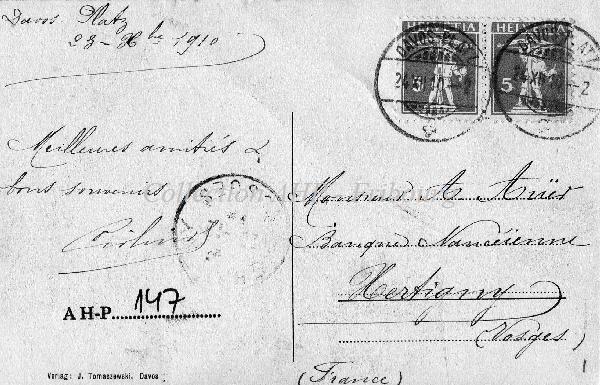 Davos Platz
23 - Xbre 1910
HELVETIA HELVETIA
5 5
DAVOS-PLATZ
24.XII.10
DAVOS-PLATZ
24.XII.
Meilleures amitiés &
bons souvenirs
Collection AHP - Fribourg
Monsieur A.
Banque Nancéienne
Hertigny
(Vosges)
(France)
AH-P. 147
Verlag: J. Tomaszewski, Davos